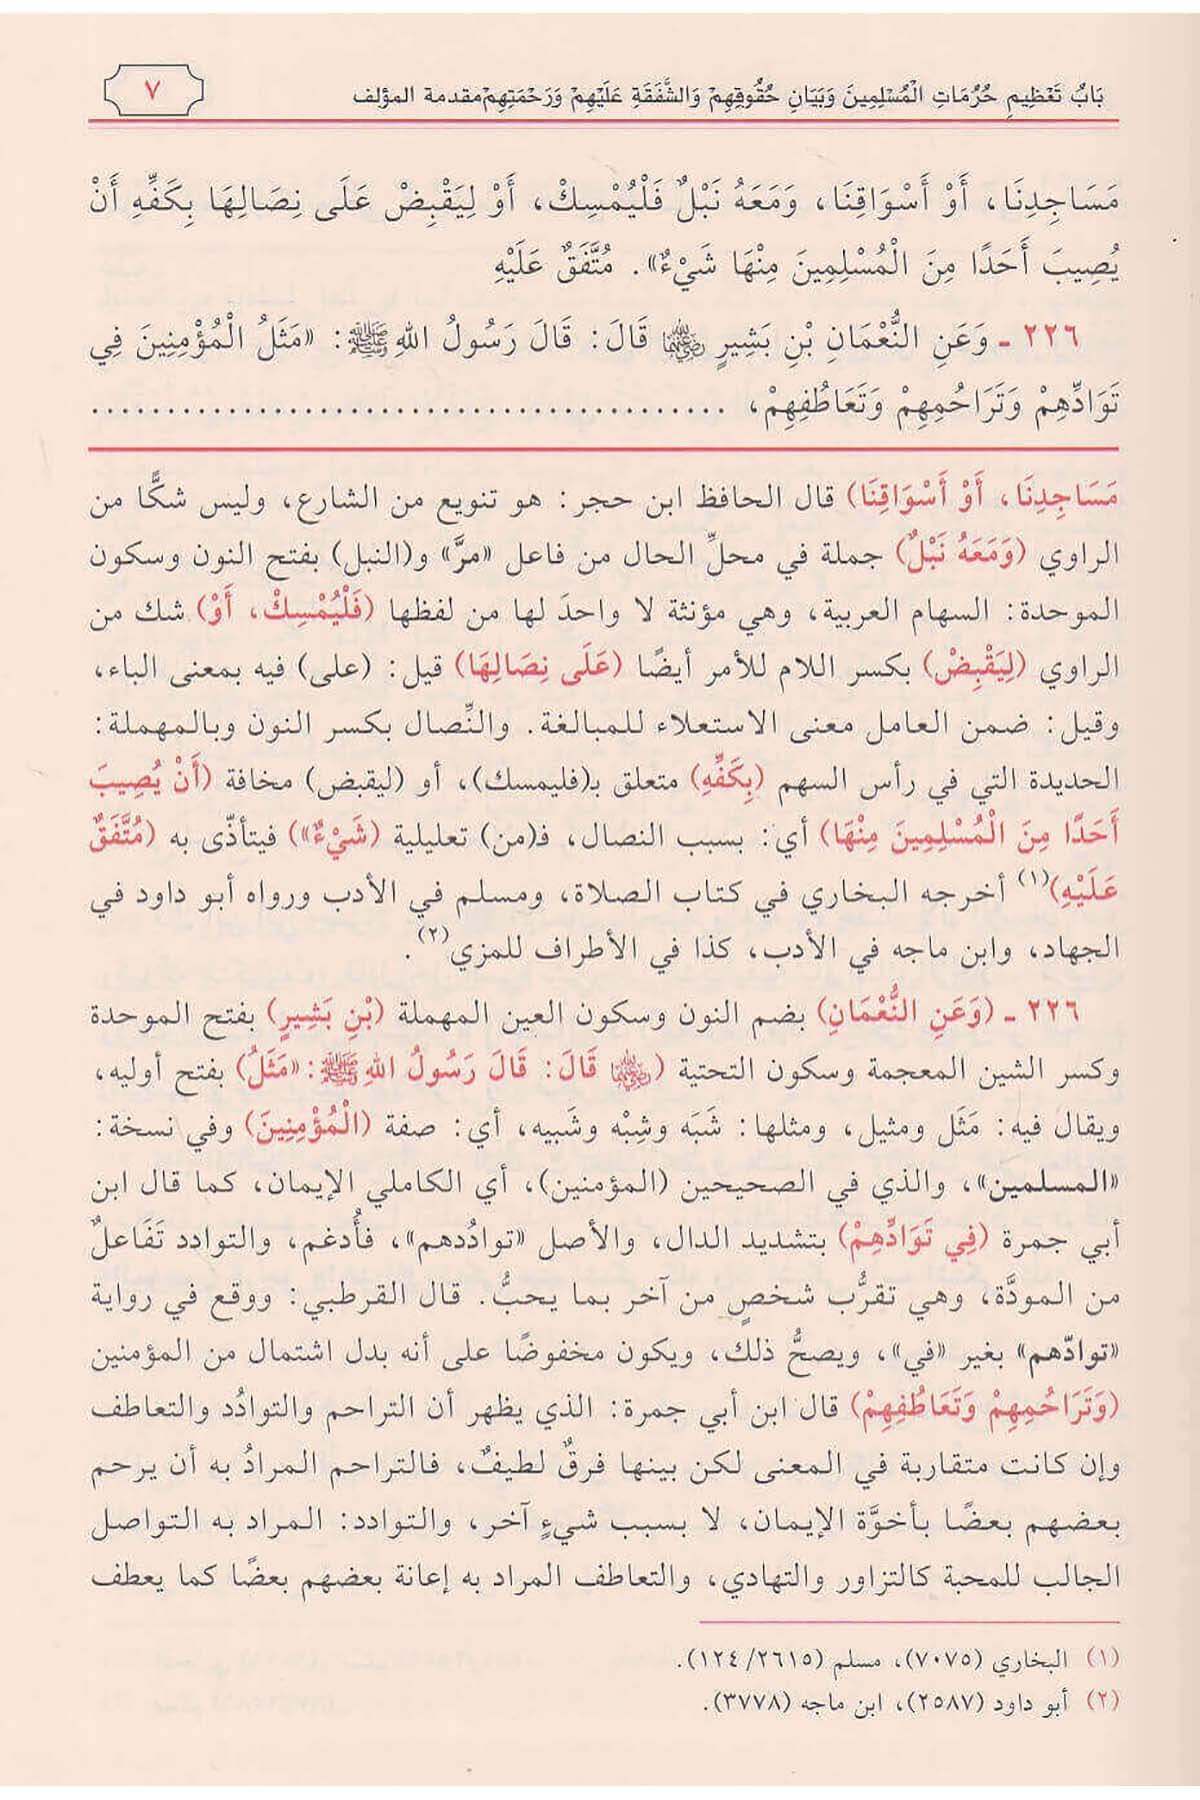 بَابُ تَعْظِيمِ حُرُمَاتِ الْمُسْلِمِينَ وَبَيَانِ حُقُوقِهِمْ وَالشَّفَقَةِ عَلَيْهِمْ وَرَحْمَتِهِمْ مقدمة المؤلف ٧
مَسَاجِدِنَا، أَوْ أَسْوَاقِنَا، وَمَعَهُ نَبْلٌ فَلْيُمْسِكْ، أَوْ لِيَقْبِضْ عَلَى نِصَالِهَا بِكَفِّهِ أَنْ
يُصِيبَ أَحَدًا مِنَ الْمُسْلِمِينَ مِنْهَا شَيْءٌ». مُتَّفَقٌ عَلَيْهِ
٢٢٦ ـ وَعَنِ النُّعْمَانِ بْنِ بَشِيرٍ رضي الله عنهما قَالَ: قَالَ رَسُولُ اللهِ ﷺ: «مَثَلُ الْمُؤْمِنِينَ فِي
تَوَادِّهِمْ وَتَرَاحُمِهِمْ وَتَعَاطُفِهِمْ، ..........................................
مَسَاجِدِنَا، أَوْ أَسْوَاقِنَا) قال الحافظ ابن حجر: هو تنويع من الشارع، وليس شكًّا من
الراوي (وَمَعَهُ نَبْلٌ) جملة في محلِّ الحال من فاعل «مرَّ» و(النبل) بفتح النون وسكون
الموحدة: السهام العربية، وهي مؤنثة لا واحدَ لها من لفظها (فَلْيُمْسِكْ، أَوْ) شك من
الراوي (لِيَقْبِضْ) بكسر اللام للأمر أيضًا (عَلَى نِصَالِهَا) قيل: (على) فيه بمعنى الباء،
وقيل: ضمن العامل معنى الاستعلاء للمبالغة. والنِّصال بكسر النون وبالمهملة:
الحديدة التي في رأس السهم (بِكَفِّهِ) متعلق بـ(فليمسك)، أو (ليقبض) مخافة (أَنْ يُصِيبَ
أَحَدًا مِنَ الْمُسْلِمِينَ مِنْهَا) أي: بسبب النصال، فـ(من) تعليلية (شَيْءٌ») فيتأذّى به (مُتَّفَقٌ
عَلَيْهِ)(١) أخرجه البخاري في كتاب الصلاة، ومسلم في الأدب ورواه أبو داود في
الجهاد، وابن ماجه في الأدب، كذا في الأطراف للمزي(٢).
٢٢٦ ـ (وَعَنِ النُّعْمَانِ) بضم النون وسكون العين المهملة (بْنِ بَشِيرٍ) بفتح الموحدة
وكسر الشين المعجمة وسكون التحتية (رضي الله عنهما قَالَ: قَالَ رَسُولُ اللهِ ﷺ: «مَثَلُ) بفتح أوليه،
ويقال فيه: مَثَل ومثيل، ومثلها: شَبَه وشِبْه وشَبيه، أي: صفة (الْمُؤْمِنِينَ) وفي نسخة:
«المسلمين»، والذي في الصحيحين (المؤمنين)، أي الكاملي الإيمان، كما قال ابن
أبي جمرة (فِي تَوَادِّهِمْ) بتشديد الدال، والأصل «تواددهم»، فأُدغم، والتوادد تَفَاعلٌ
من المودَّة، وهي تقرُّب شخصٍ من آخر بما يحبُّ. قال القرطبي: ووقع في رواية
«توادّهم» بغير «في»، ويصحُّ ذلك، ويكون مخفوضًا على أنه بدل اشتمال من المؤمنين
(وَتَرَاحُمِهِمْ وَتَعَاطُفِهِمْ) قال ابن أبي جمرة: الذي يظهر أن التراحم والتوادُد والتعاطف
وإن كانت متقاربة في المعنى لكن بينها فرقٌ لطيفٌ، فالتراحم المرادُ به أن يرحم
بعضهم بعضًا بأخوَّة الإيمان، لا بسبب شيءٍ آخر، والتوادد: المراد به التواصل
الجالب للمحبة كالتزاور والتهادي، والتعاطف المراد به إعانة بعضهم بعضًا كما يعطف
(١) البخاري (٧٠٧٥)، مسلم (٢٦١٥/١٢٤).
(٢) أبو داود (٢٥٨٧)، ابن ماجه (٣٧٧٨).